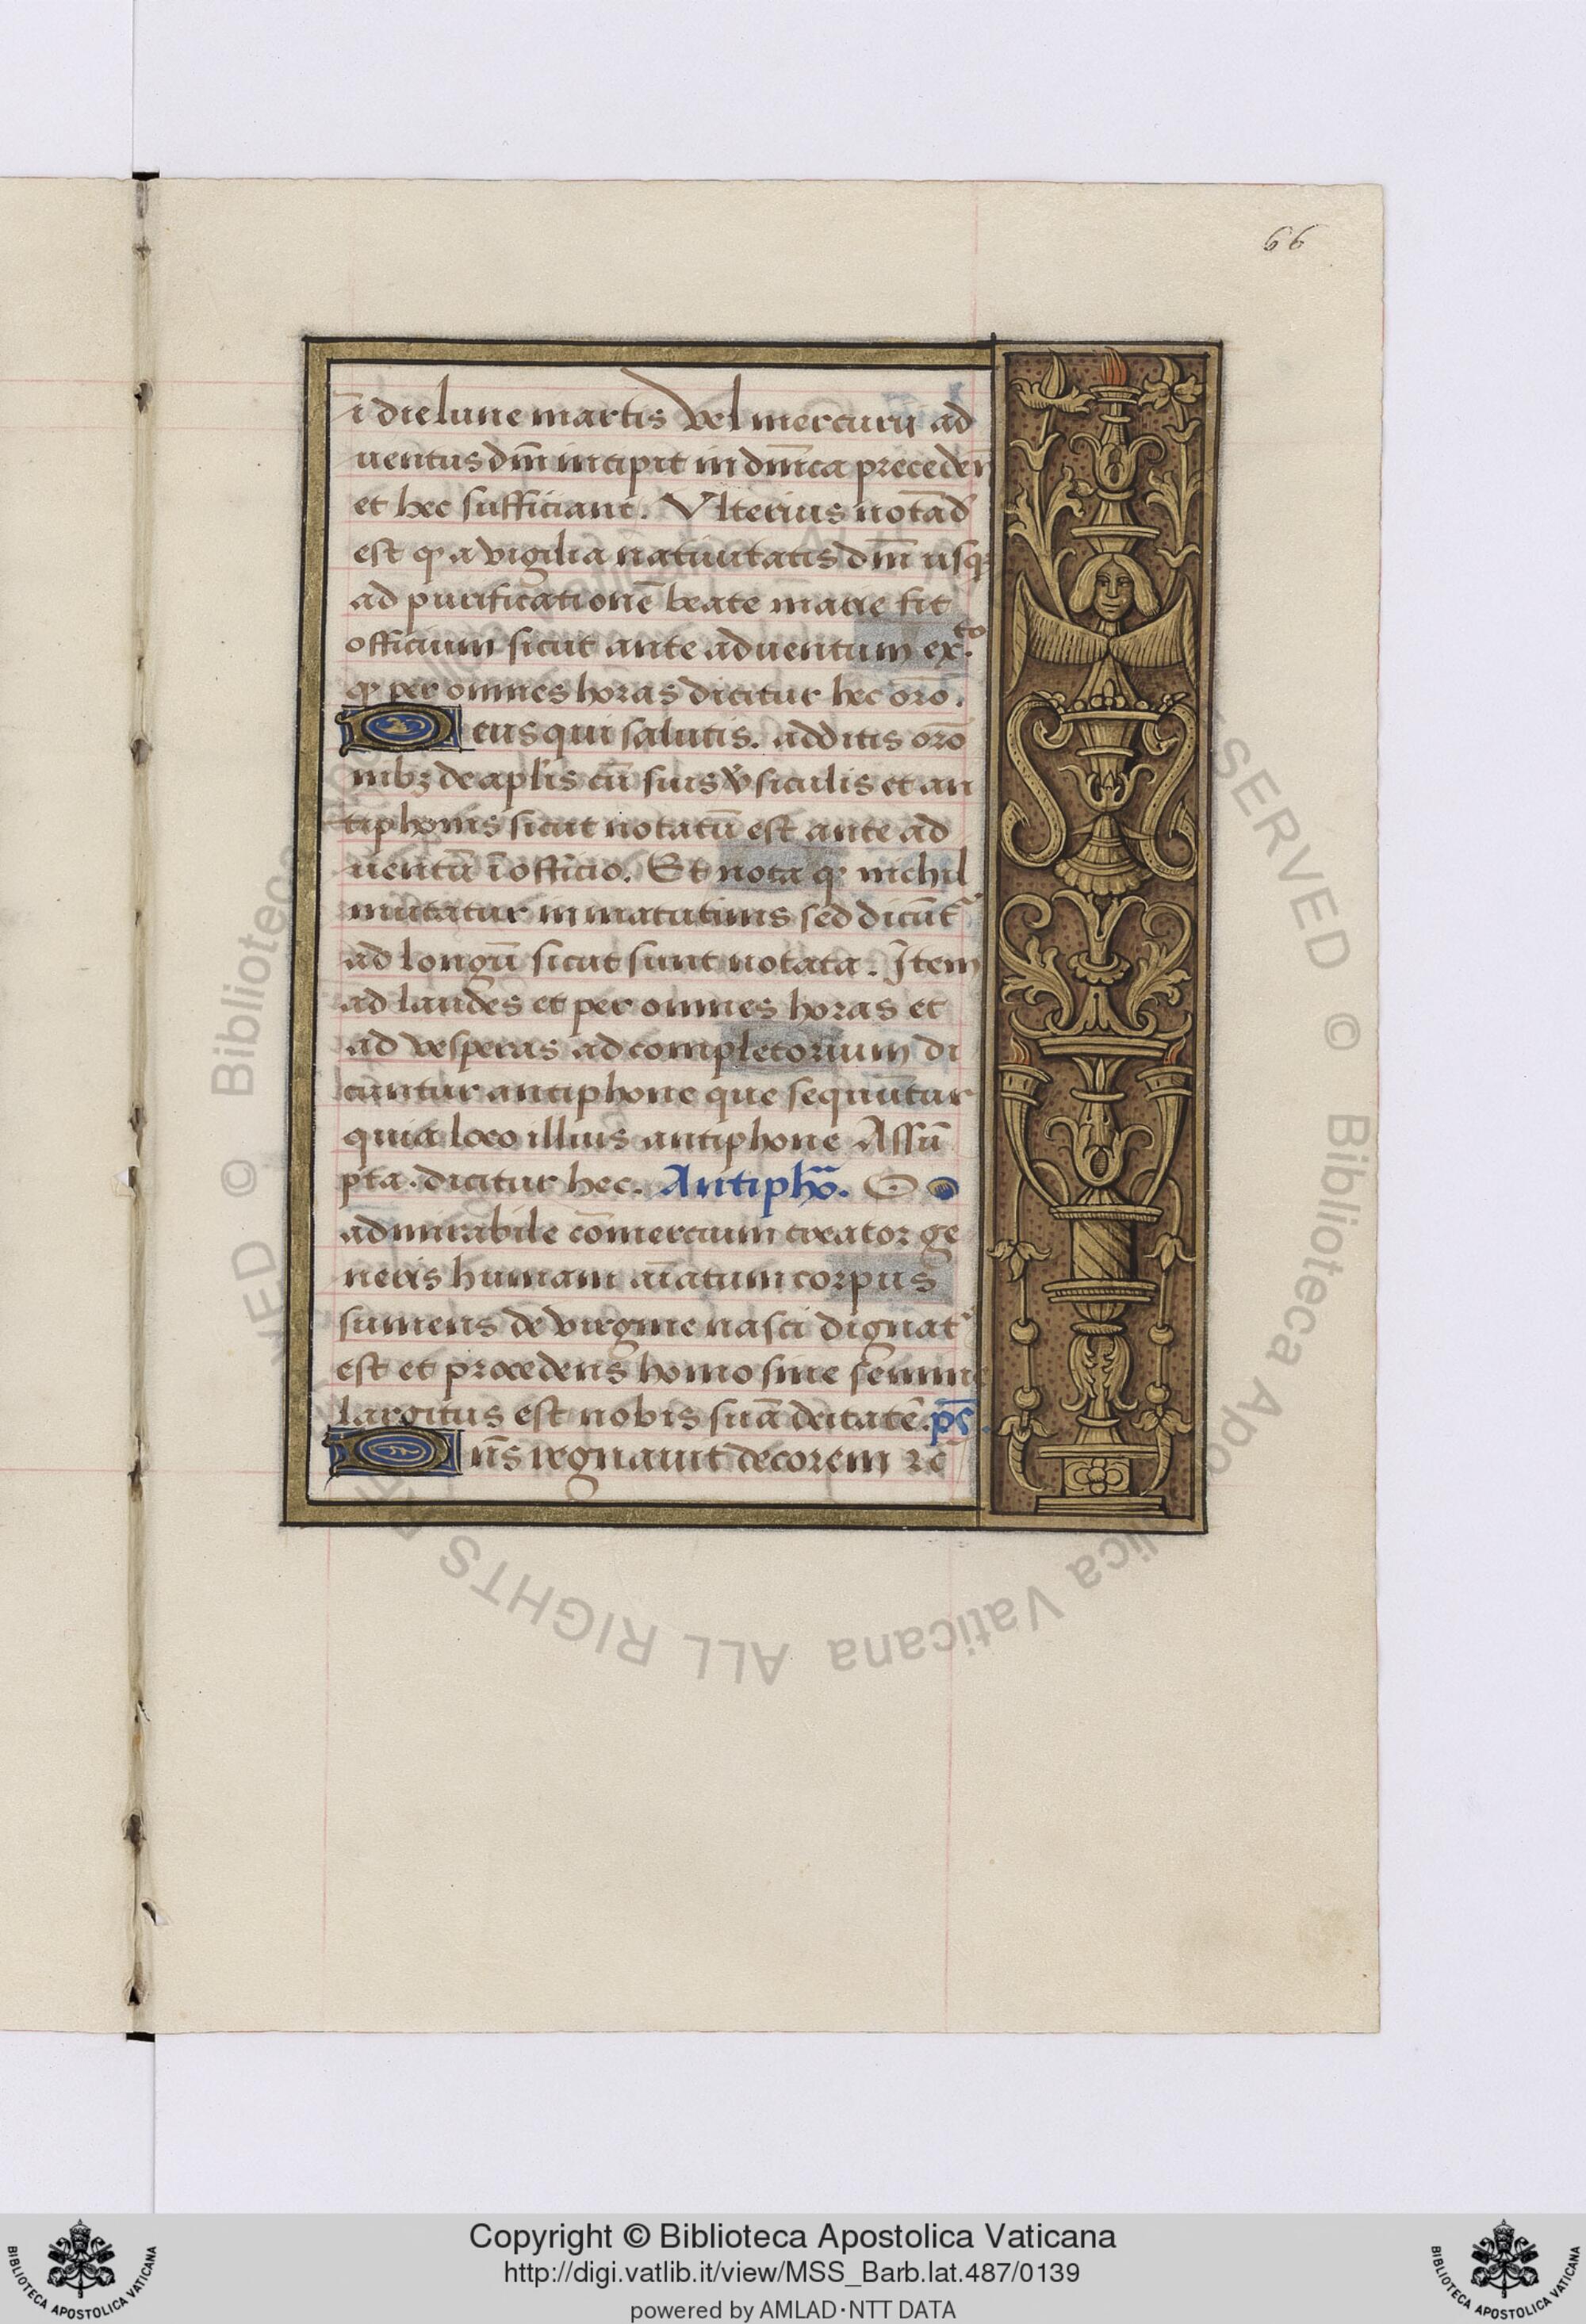 66
ī die lune martis vel mercurii ad
uentus dn̄i incipit in dn̄ica preceden
et hec sufficiant. Vlterius notād
est ꝙ a vigilia natiuitatis dn̄i usqꝫ
ad purificationē beate marie fit
officium sicut ante aduentum ex.to
ꝙ per omnes horas dicitur hec orō.
Deus qui salutis. additis orō
nibꝫ de apl'is cū suis v̓siculis et an
tiphonis sicut notatū est ante ad
uentū ī officio. Et nota ꝙ nichil
mutatur in matutinis sed dicūt᷑
ad longū sicut sunt notata. Item
ad laudes et per omnes horas et
ad vesperas ad completorium di
cuntur antiphone que sequūtur
quia loco illius antiphone Assū
pta. dicitur hec. Antipho. O
admirabile cōmercium creator ge
neris humani aīatum corpus
sumens de virgine nasci dignat᷒
est et procedens homo sine semine
largitus est nobis suā deitatē. ps̄.
Dn̄s regnauit decorem re
© Biblioteca Apostolica Vaticana ALL RIGHTS RESERVED
BIBLIOTECA APOSTOLICA VATICANA
Copyright © Biblioteca Apostolica Vaticana
http://digi.vatlib.it/view/MSS_Barb.lat.487/0139
powered by AMLAD·NTT DATA
BIBLIOTECA APOSTOLICA VATICANA